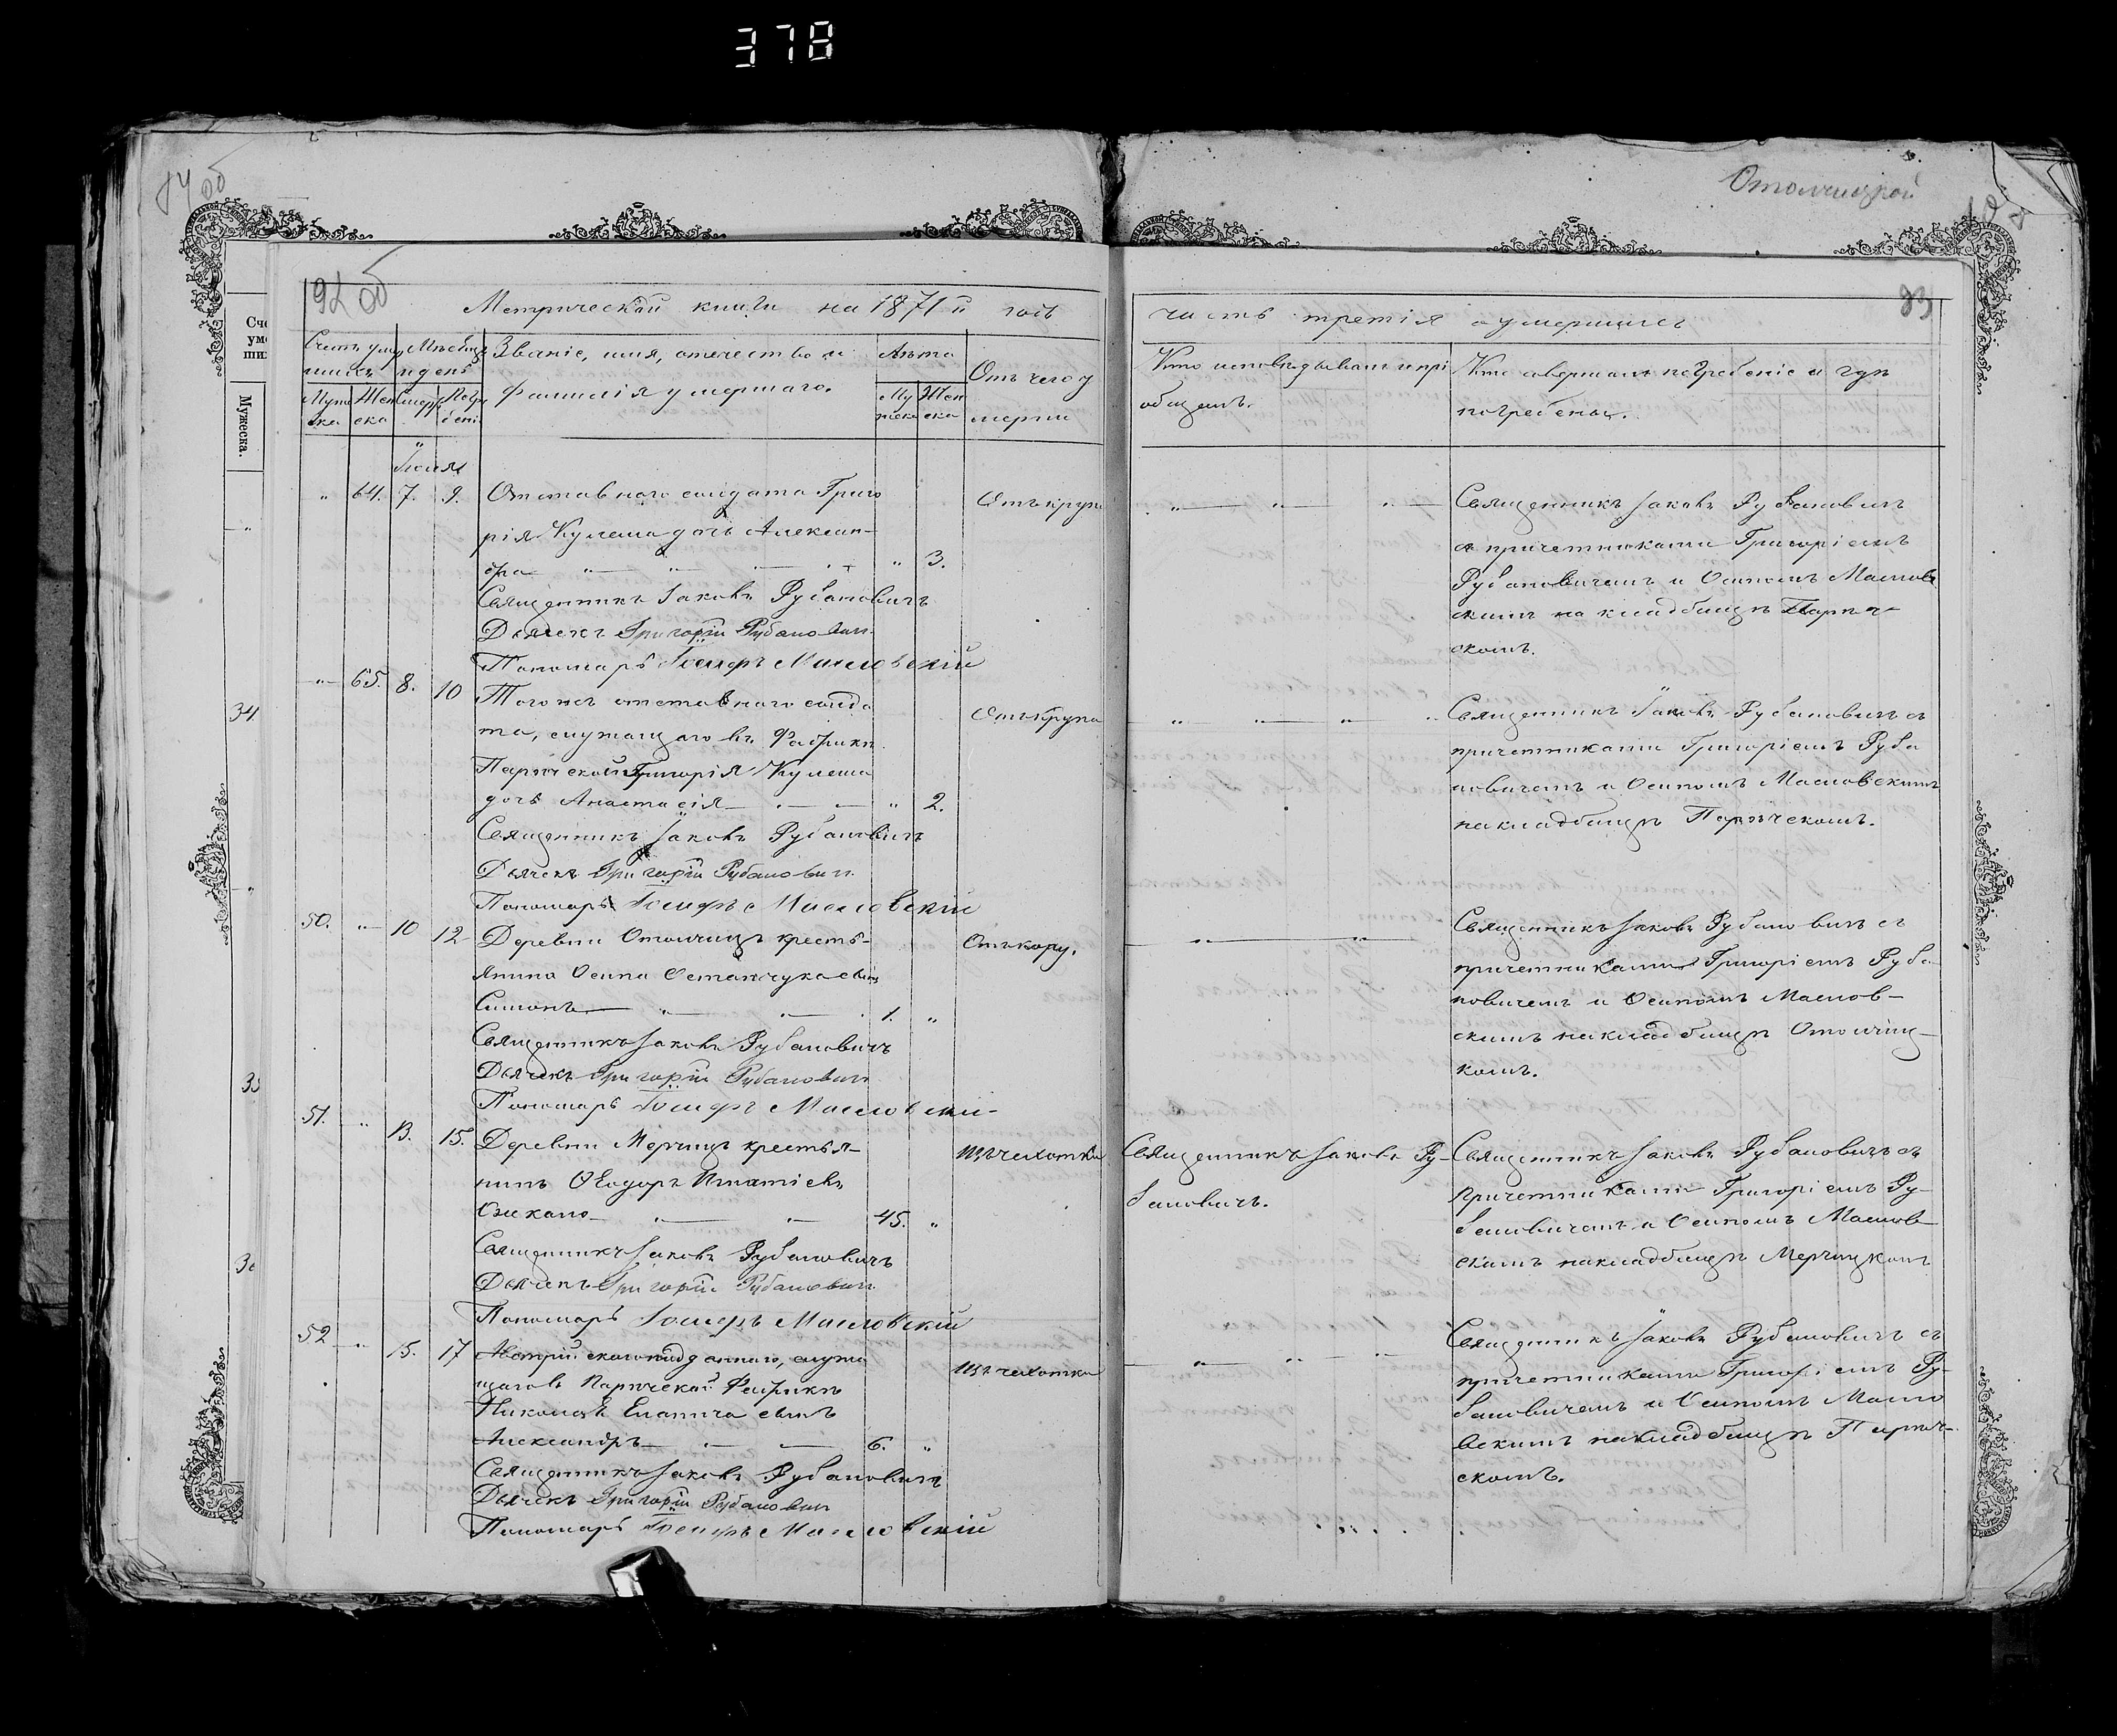 378
84 об
Отолчицкой
92 об
93
Метрической книги на 1871й годъ
часть третія о умершихъ
Счетъ умер
шихъ
Мѣсяцъ
и день
Званіе, имя, отечество и
фамилія умершаго.
Лѣта
Отъ чего у
мерли
Муже
ска
Жен
ска
Смерт
Погре
бені
Му
жеска
Жен
ска
Кто исповѣдывалъ и прі
общалъ.
Кто совершалъ погребеніе и гдѣ
погребены.
Сче
уме
ши
Мужеска.
34
Іюля
" 64. 7. 9. Отставного солдата Григо
рія Кулеша дочь Алексан-
дра " 3.
Отъ крупа
Священникъ Іаковъ Рубановичъ
Дьячекъ Григорій Рубанович
Пономарь Іосифъ Масловскій
Священникъ Іаковъ Рубановичъ
с причетниками Григоріемъ
Рубановичемъ и Осипомъ Маслов
скимъ на кладбищѣ Парѣч-
скомъ.
" 65. 8. 10 Того же отставного солда
та, служащаго въ Фабрикѣ
Парѣчской Григорія Кулеша
дочь Анастасія " 2.
Отъ крупа
Священникъ Іаковъ Рубановичъ
Дьячекъ Григорій Рубанович
Пономарь Іосифъ Масловскій
Священникъ Іаковъ Рубановичъ съ
причетниками Григоріемъ Руба
новичемъ и Осипомъ Масловскимъ
на кладбищѣ Парѣчскомъ.
50. " 10 12 Деревни Отолчицъ кресть-
янина Осипа Остапчука сынъ
Симонъ 1. "
Отъ кору.
Священникъ Іаковъ Рубановичъ
Дьячекъ Григорій Рубанович
Пономарь Іосифъ Масловскій
Священникъ Іаковъ Рубановичъ съ
причетниками Григоріемъ Руба-
новичемъ и Осипомъ Маслов-
скимъ на кладбищѣ Отолчиц-
комъ.
51. " 13. 15. Деревни Мерчицъ крестья-
нинъ Ѳеодоръ Игнатіевъ
45. "
Изъ чехотки
Священникъ Іаковъ Рубановичъ
Дьячекъ Григорій Рубанович
Пономарь Іосифъ Масловскій
Священникъ Іаковъ Ру-
бановичъ.
Священникъ Іаковъ Рубановичъ съ
Причетниками Григоріемъ Ру-
бановичемъ и Осипомъ Маслов
скимъ на кладбищѣ Мерчицкомъ
52 " 15. 17 Австрійскаго подданаго, служа
щаго въ Парѣчской Фабрикѣ
Николая Елатича сынъ
Александръ 6. "
Изъ чехотки
Священникъ Іаковъ Рубановичъ
Дьячекъ Григорій Рубанович
Пономарь Іосифъ Масловскій
Священникъ Іаковъ Рубановичъ съ
причетниками Григоріемъ Ру-
бановичемъ и Осипомъ Масло
вскимъ на кладбищѣ Парѣч-
скомъ.